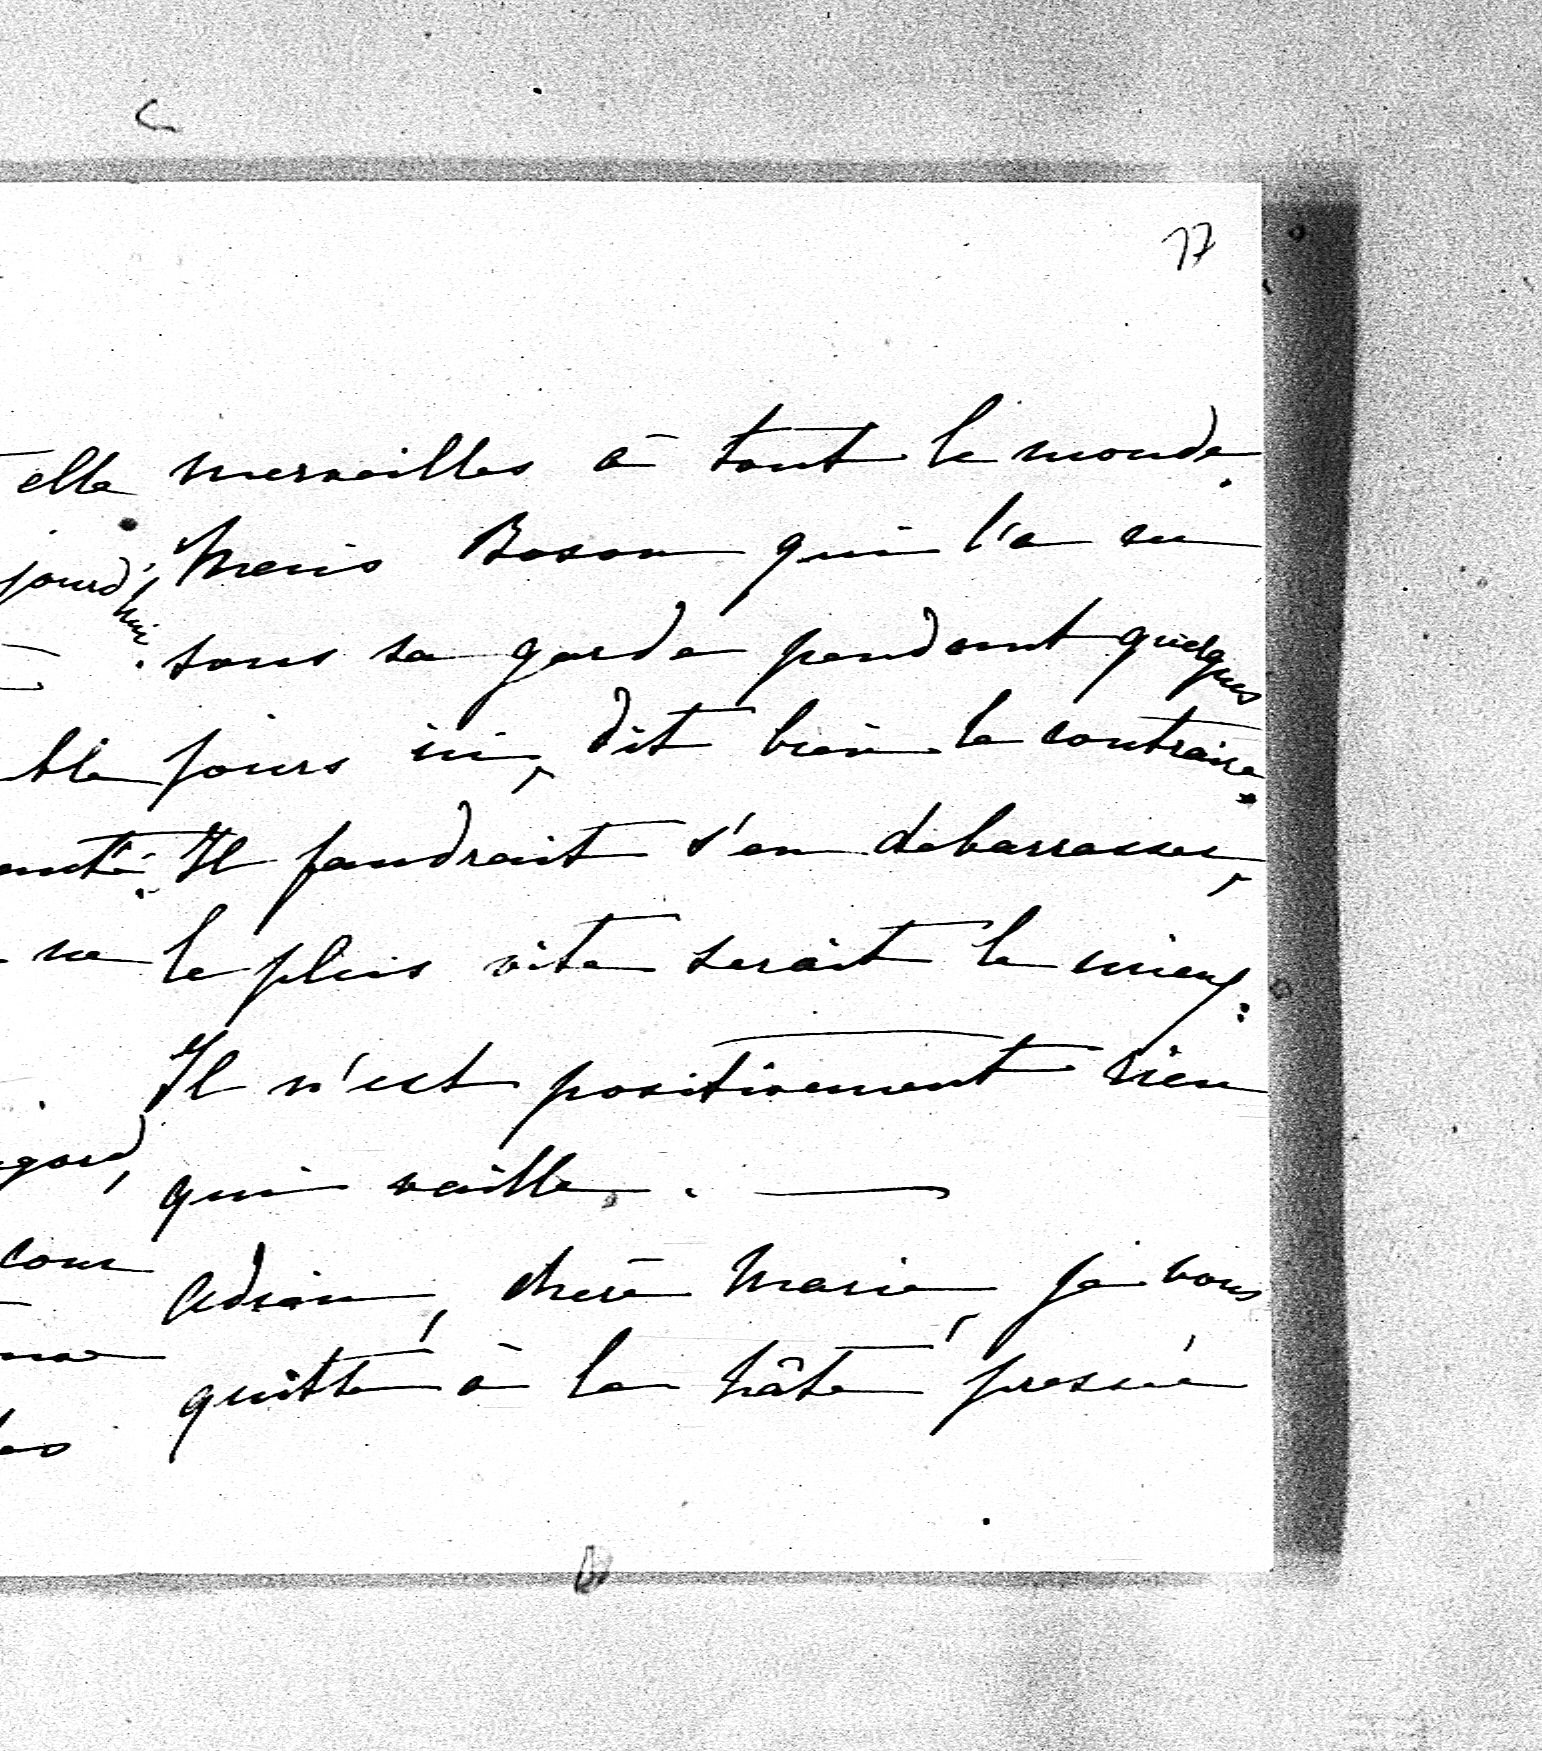 77
merveilles à tout le monde.
Mais Boson qui l'a eu
sous sa garde pendant quelques
jours ici, dit bien le contraire.
Il faudrait s'en debarrasser,
le plus vite serait le mieux.
Il n'est positivement rien
qui vaille. —
Adieu, chère Marie, je vous
quitte à la hâte, pressée
elle
jourd'hui.
ble
ne
cour